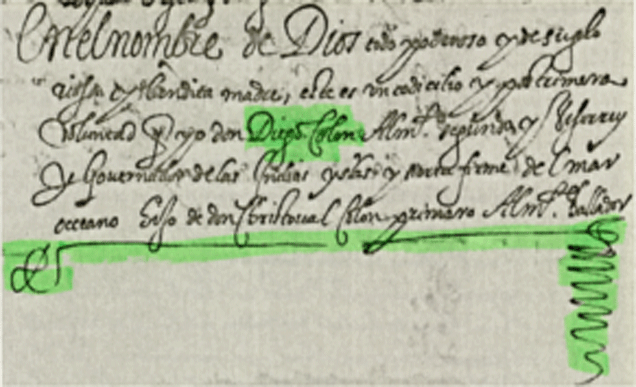 En el nombre de Dios todo poderoso y de su glo
riossa y bendita madre, este es un codicilio y postrimera
Voluntad q yo don Diego Colon Almte. segundo y Visorrey
y Governador de las Indias yslas y tierra firme del mar
occeano Hijo de don Christoval Colon primero Almte.